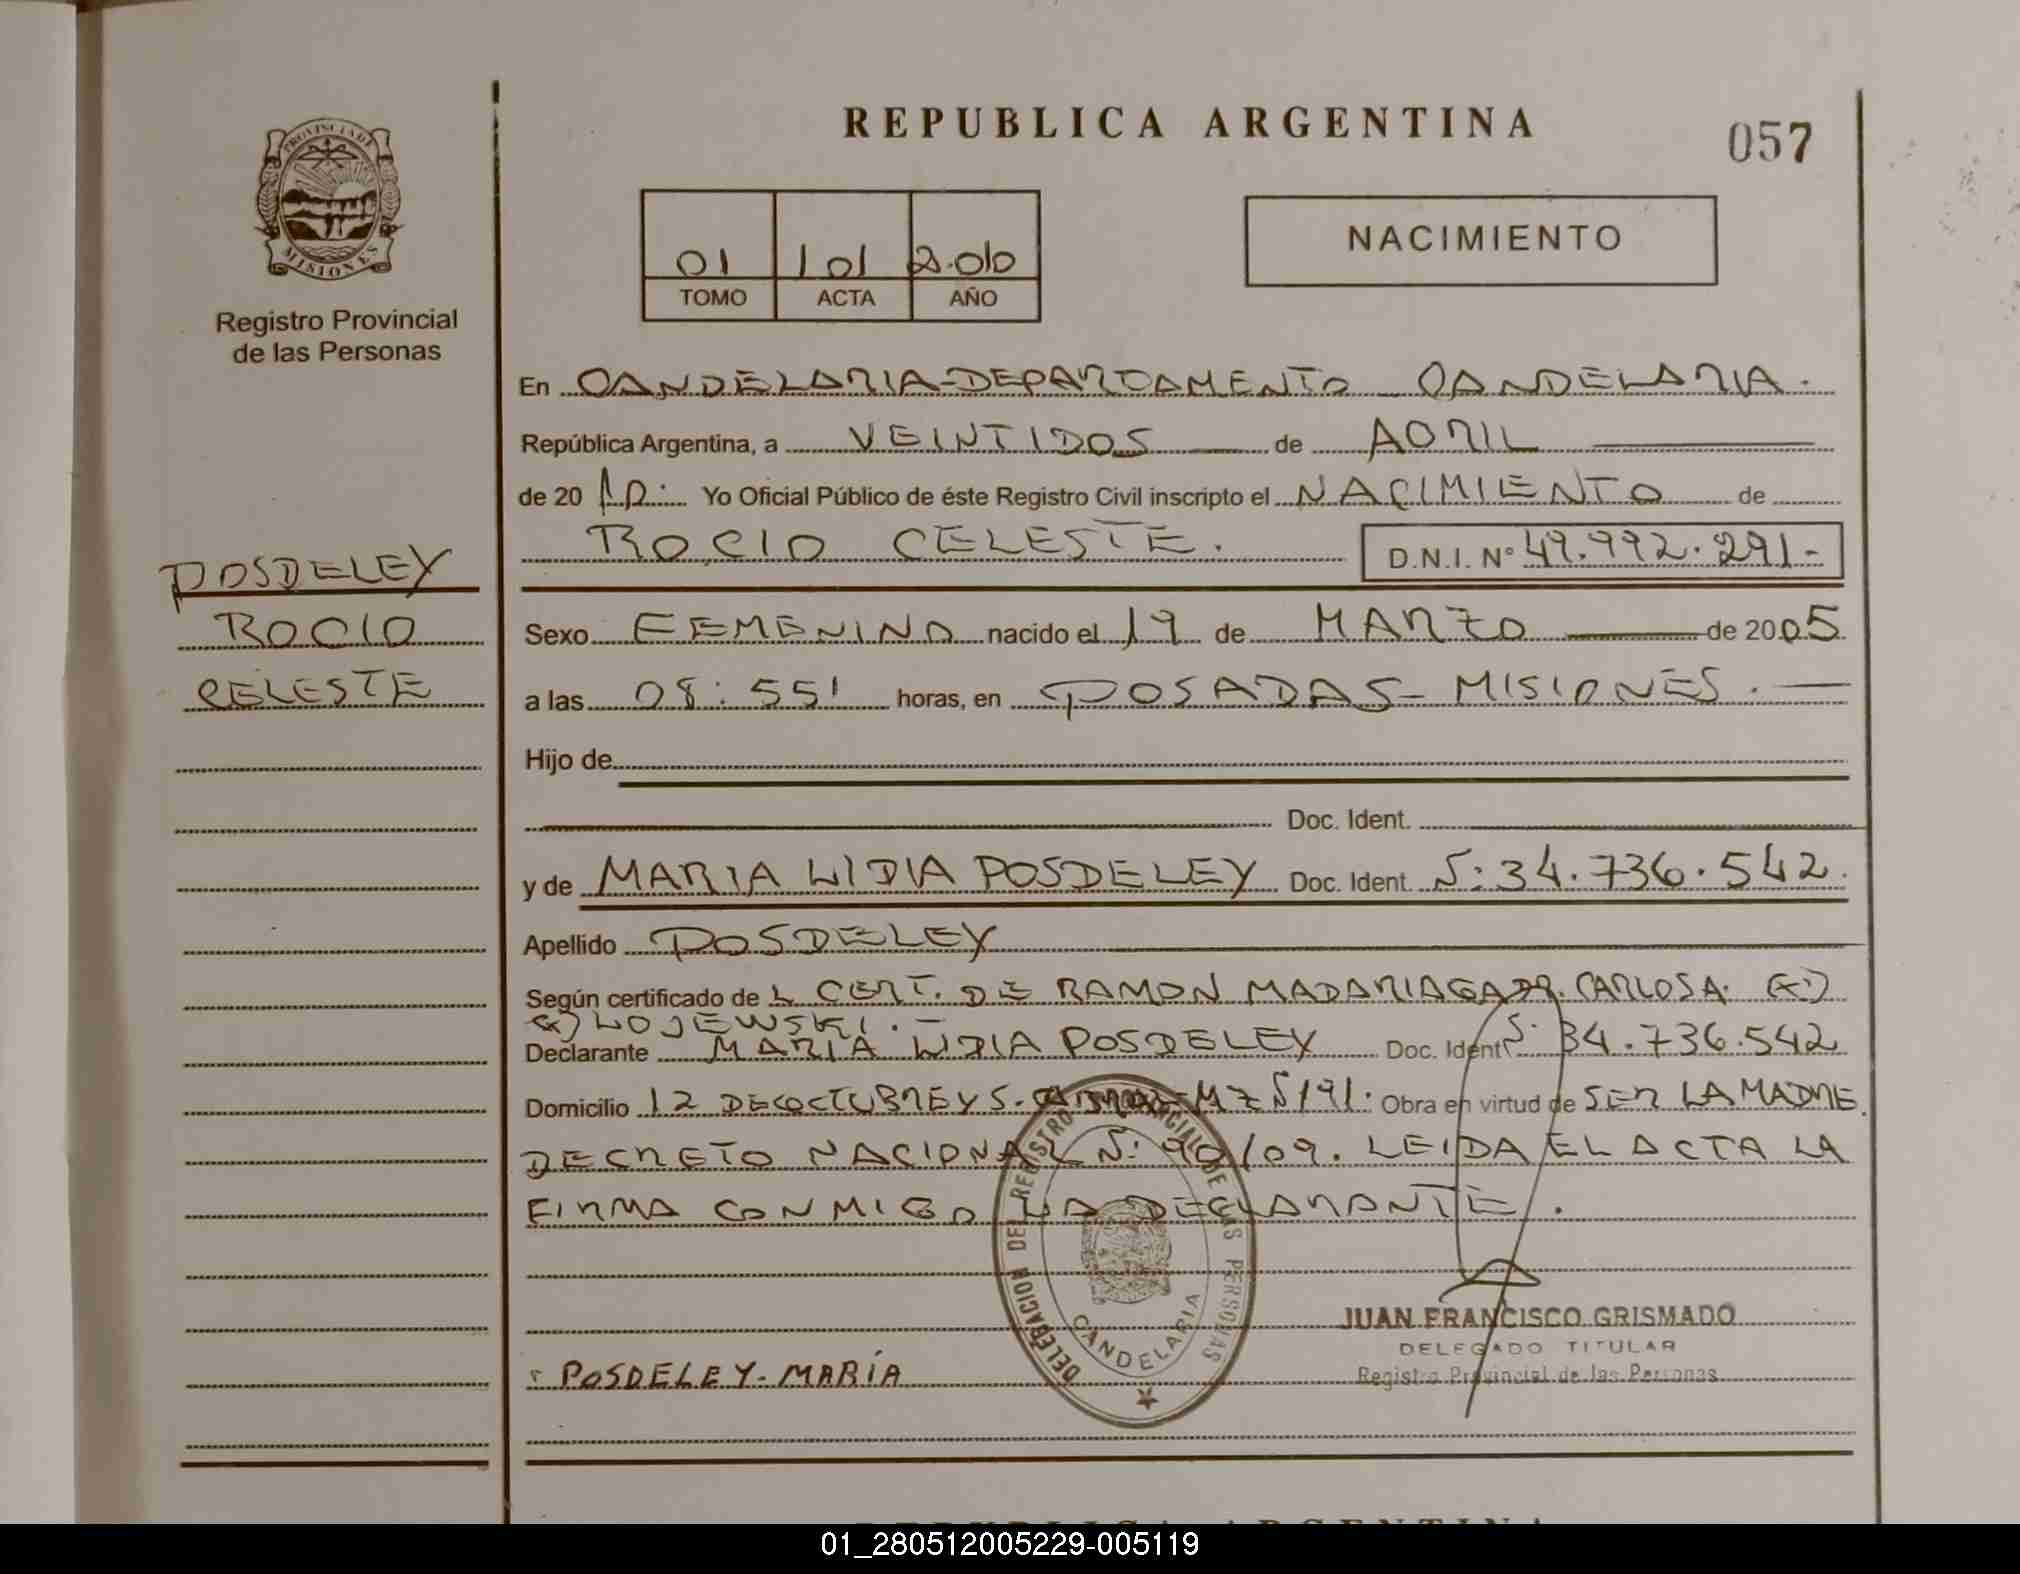 REPUBLICA ARGENTINA
057
PROVINCIA DE
MISIONES
Registro Provincial
de las Personas
01 101 2.010
TOMO ACTA AÑO
NACIMIENTO
En CANDELARIA-DEPARTAMENTO CANDELARIA.
República Argentina, a VEINTIDOS de ABRIL
de 20 10. Yo Oficial Público de éste Registro Civil inscripto el NACIMIENTO de
ROCIO CELESTE. D.N.I. N° 49.992.291-
POSDELEY
ROCIO
CELESTE
Sexo FEMENINO nacido el 19 de MARZO de 2005
a las 08:55' horas, en POSADAS-MISIONES.
Hijo de
Doc. Ident.
y de MARIA LIDIA POSDELEY Doc. Ident. N: 34.736.542.
Apellido POSDELEY
Según certificado de L CERT. DE RAMON MADARIAGA DR. CARLOS A.
LOJEWSKI.
Declarante MARIA LIDIA POSDELEY Doc. Ident N: 34.736.542
Domicilio 12 DE OCTUBRE Y S. MZ N 191. Obra en virtud de SER LA MADRE.
DECRETO NACIONAL N: 90/09. LEIDA EL ACTA LA
FIRMA CONMIGO LA DECLARANTE.
DELEGACION DEL REGISTRO PROVINCIAL DE LAS PERSONAS
CANDELARIA
JUAN FRANCISCO GRISMADO
DELEGADO TITULAR
Registro Provincial de las Personas
POSDELEY-MARÍA
REPUBLICA ARGENTINA
01_280512005229-005119